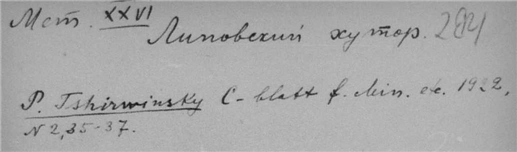 Мет. XXVI
Липовский хутор.
P. Tshirwinsky C-blatt f. Min. etc. 1922,
N 2, 35-37.